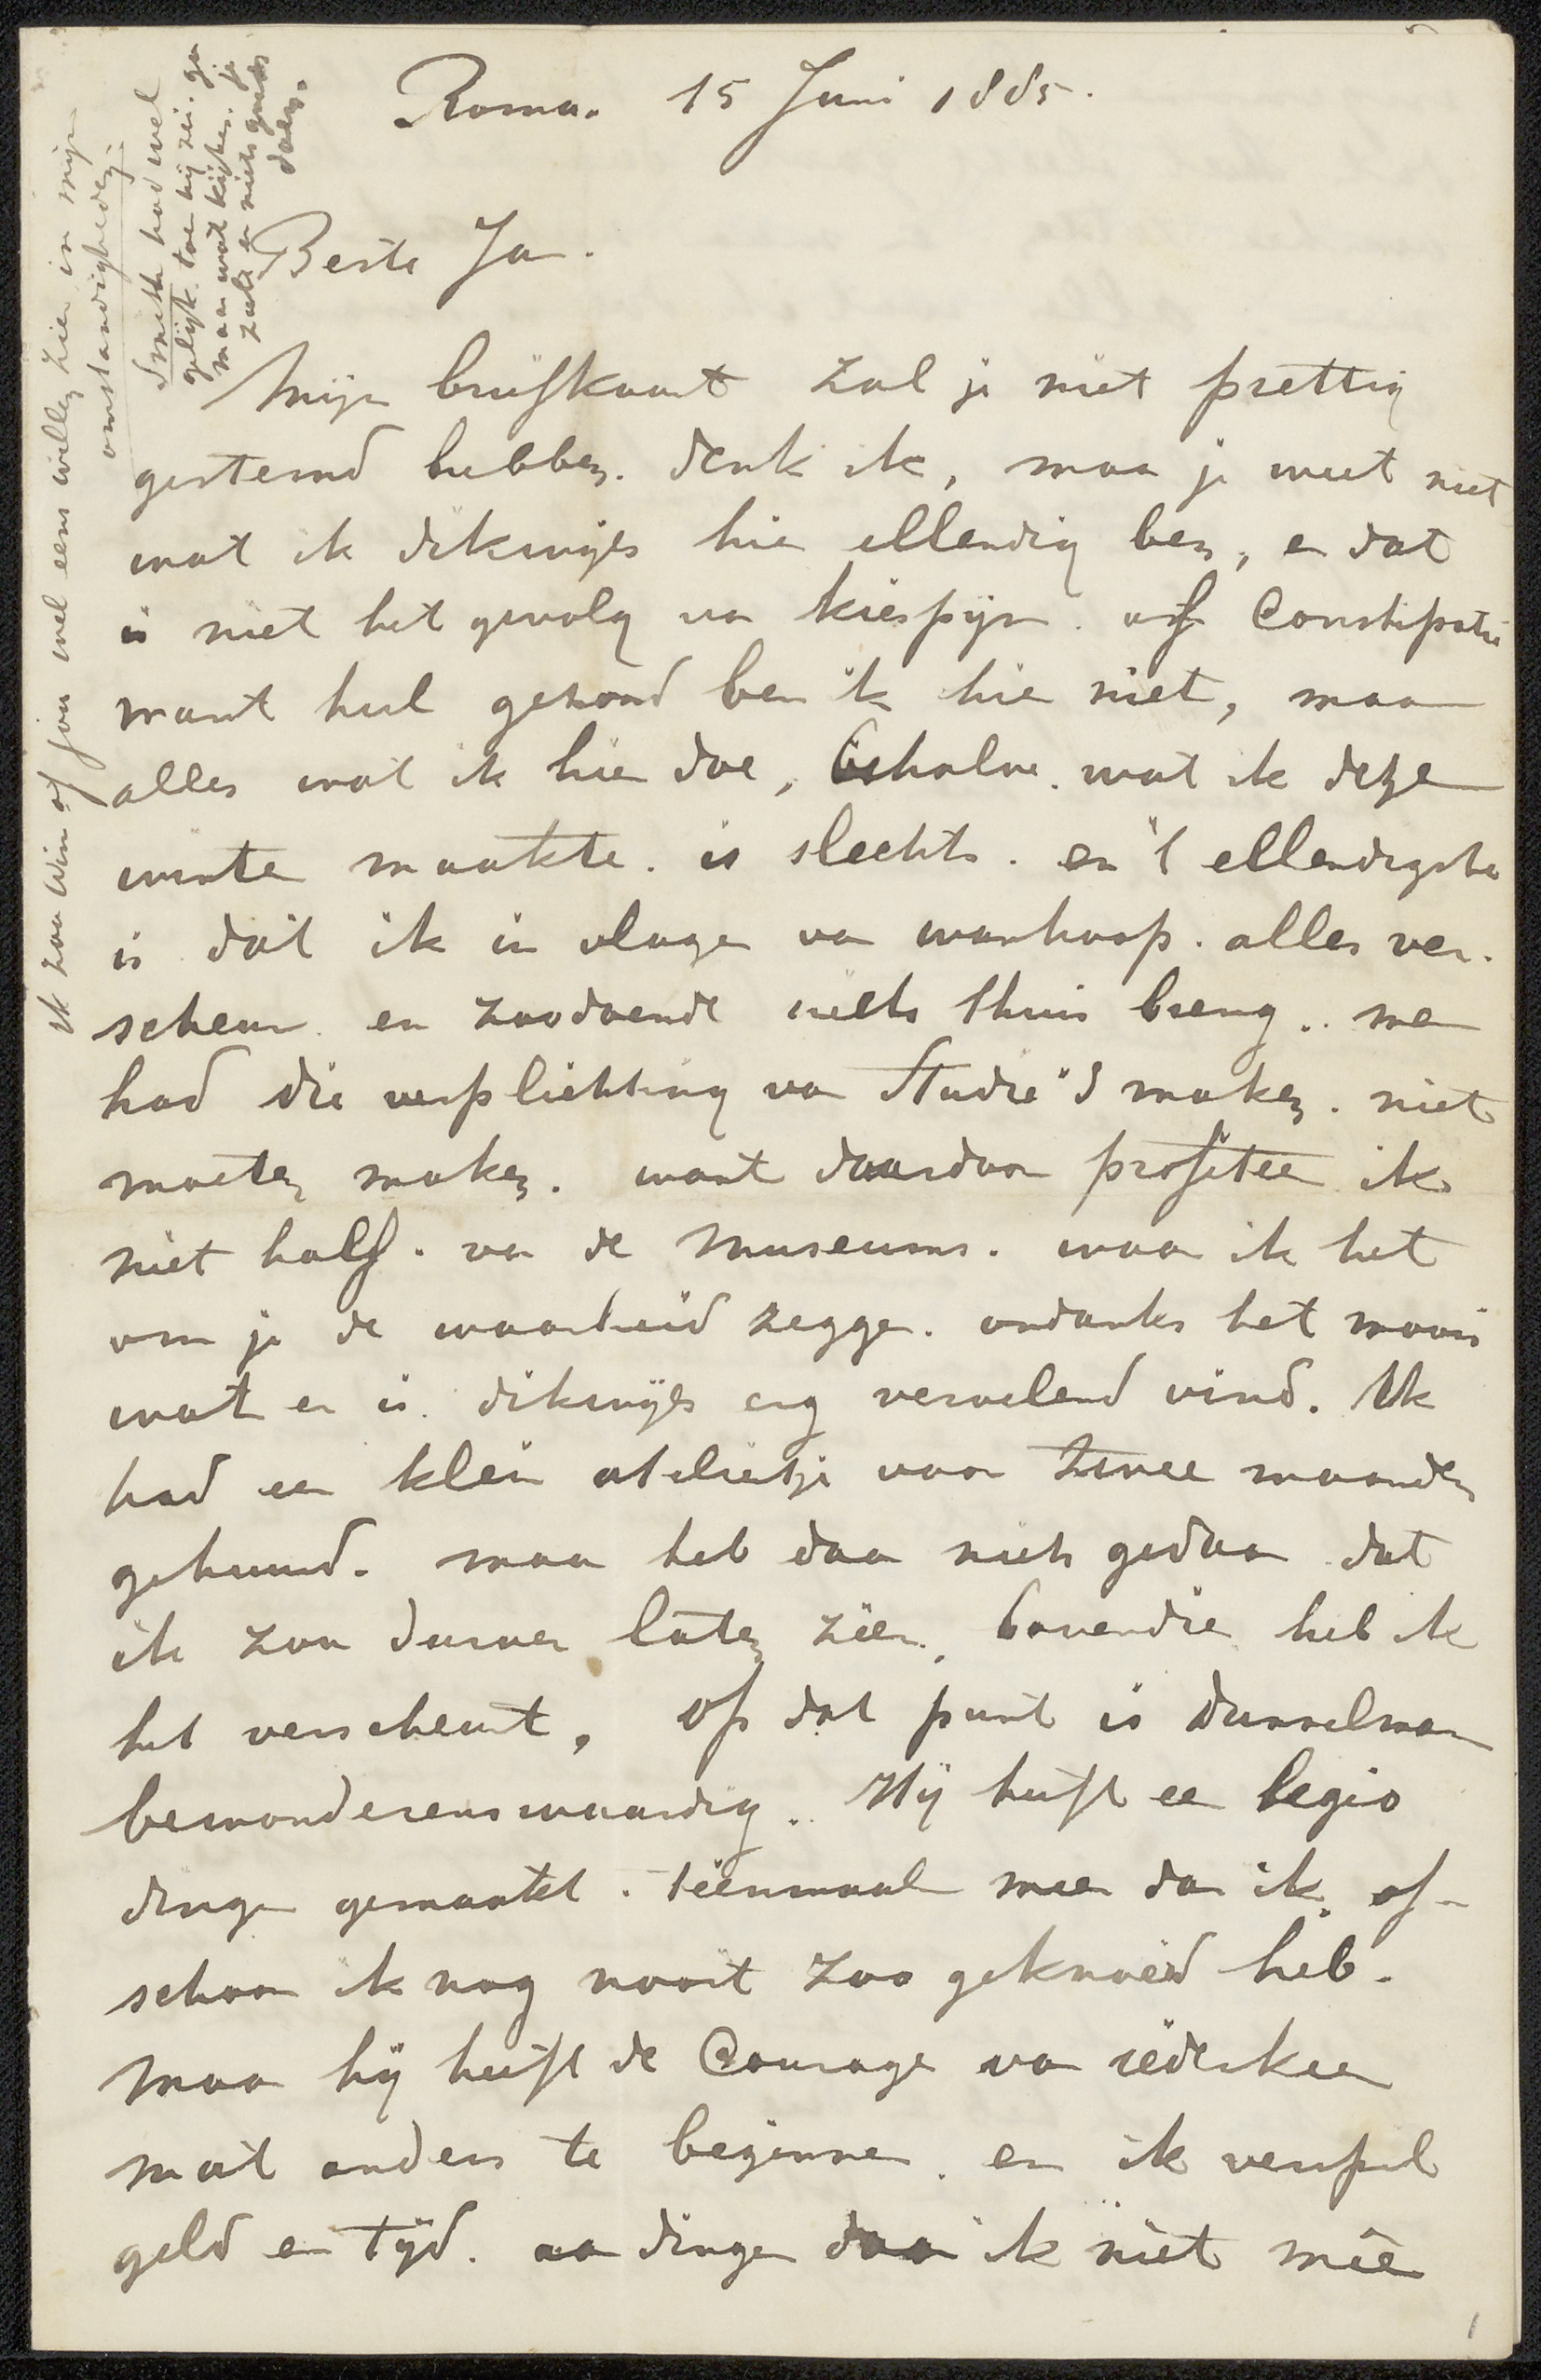 Roma. 15 Juni 1885.
Beste Jan.
Mijn briefkaart zal je niet prettig
gestemd hebben. denk ik, maar je weet niet
wat ik dikwijls hier ellendig ben, en dat
is niet het gevolg van kiespijn. of Constipatie
want heel gezond ben ik hier niet, maar
alles wat ik hier doe, behalve. wat ik dezen
winter maakte. is slecht. en 't ellendigste
is dat ik in vlagen van wanhoop. alles ver-
scheur. en zoodoende niets thuis breng.. men
had die verplichting van Studie's maken. niet
moeten maken. want daardoor profiteer ik
niet half. van de Museums. waar ik het
om je de waarheid zeggen. ondanks het moois
wat er is. dikwijls erg vervelend vind. Ik
had een klein ateliertje voor twee maanden
gehuurd. maar heb daar niets gedaan dat
ik zou durven laten zien., bovendien heb ik
het verscheurt, op dat punt is Dunselman
bewonderenswaardig.. Hij heeft een legio
dingen gemaakt. tienmaal meer dan ik. of-
schoon ik nog nooit zoo geknoeid heb.
maar hij heeft de Courage van iederkeer
wat anders te beginnen. en ik verspil
geld en tijd. aan dingen daar ik niet meê
1
Smith had wel
gelijk. toen hij zei. ga
maar wat kijken. je
zult er niets goeds
doen.
Ik zou Win of jou wel eens willen zien in mijn
omstandigheden.